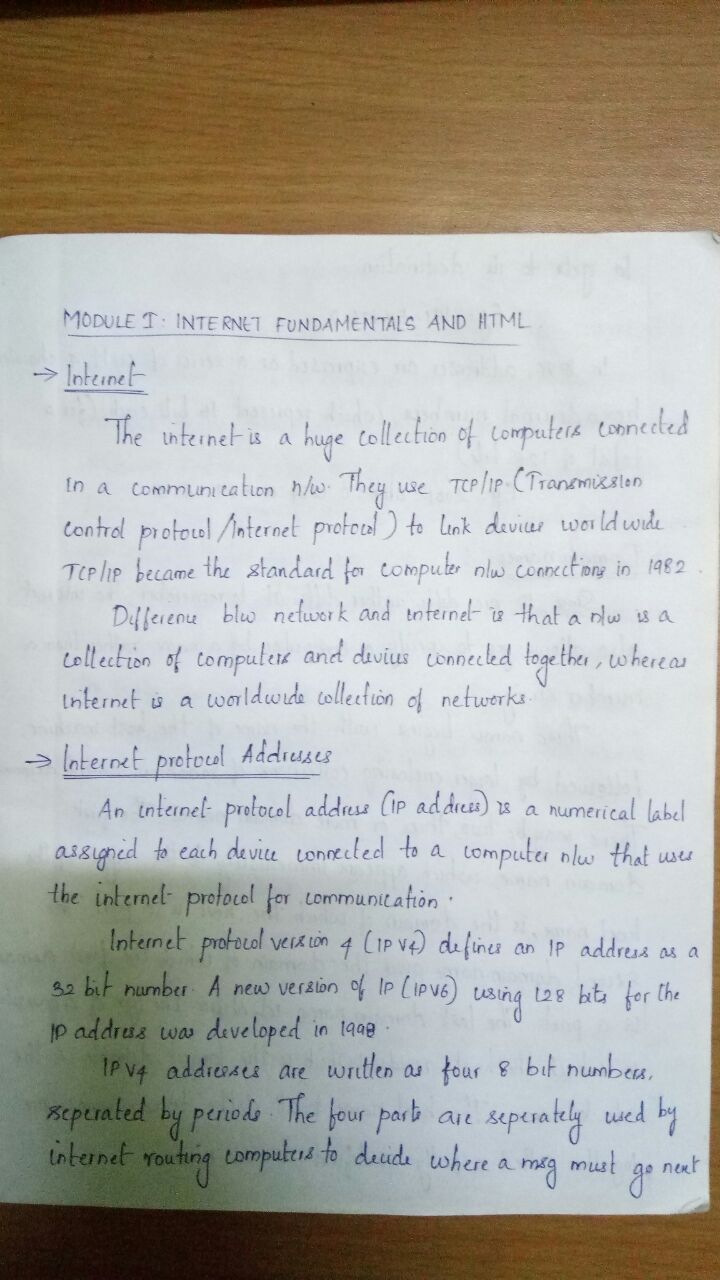 MODULE I: INTERNET FUNDAMENTALS AND HTML
→ Internet
The internet is a huge collection of computers connected
in a communication n/w. They use TCP/IP (Transmission
control protocol/Internet protocol) to link devices worldwide
TCP/IP became the standard for computer n/w connections in 1982.
Difference b/w network and internet is that a n/w is a
collection of computers and devices connected together, whereas
internet is a worldwide collection of networks.
→ Internet protocol Addresses
An internet protocol address (IP address) is a numerical label
assigned to each device connected to a computer n/w that uses
the internet protocol for communication.
Internet protocol version 4 (IPV4) defines an IP address as a
32 bit number. A new version of IP (IPV6) using 128 bits for the
IP address was developed in 1998.
IPV4 addresses are written as four 8 bit numbers,
seperated by periods. The four parts are seperately used by
internet routing computers to decide where a msg must go next